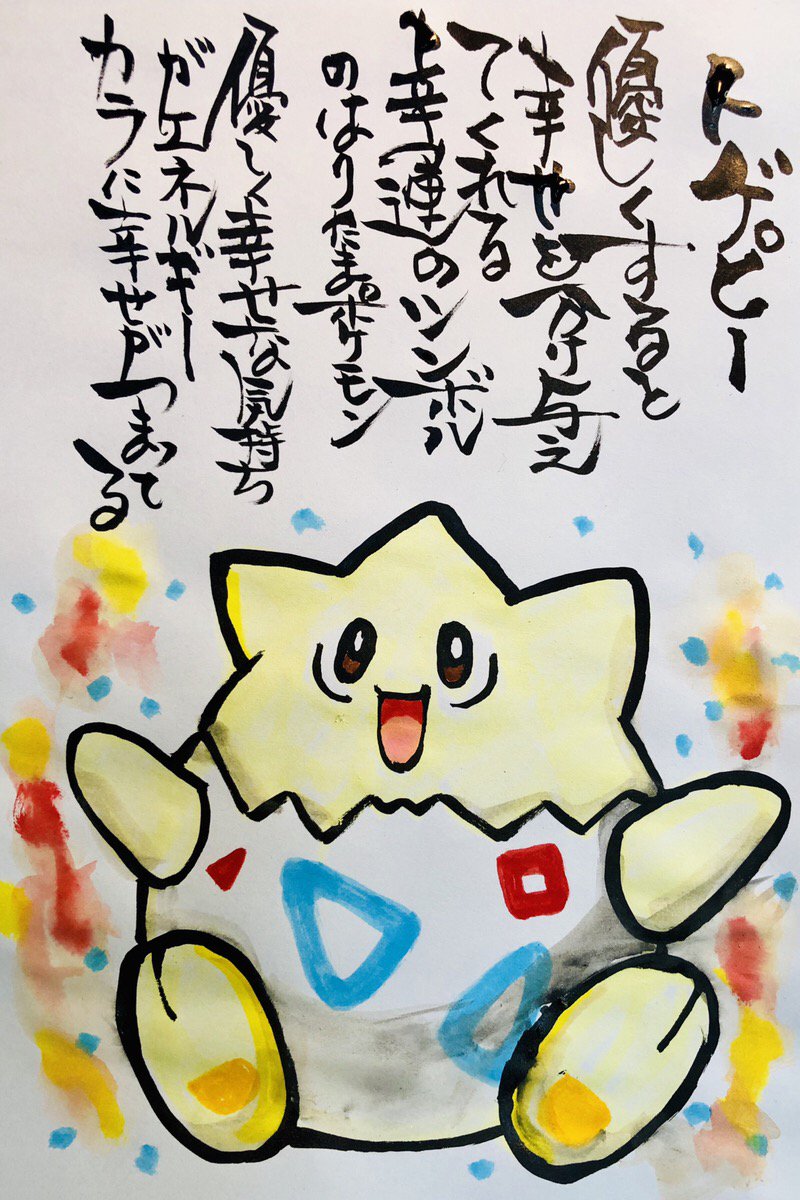 トゲピー
優しくすると
幸せを分け与え
てくれる
幸運のシンボル
のはりたまポケモン
優しく幸せな気持ち
がエネルギー
カラに幸せがつまって
る